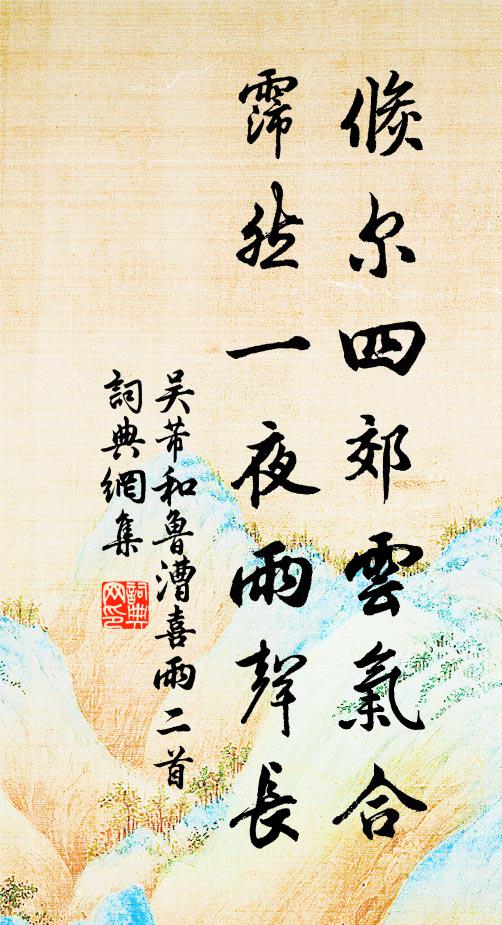 倏尔四郊雲氣合
霈然一夜雨聲長
吴芾和魯漕喜雨二首
詞典網集
詞典
网印